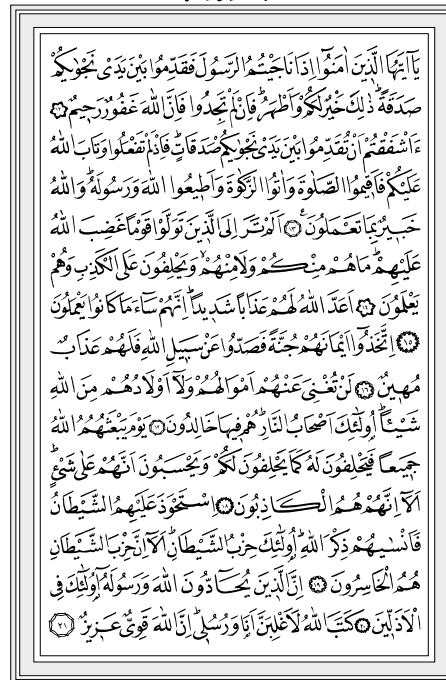 يَآ اَيُّهَا الَّذ۪ينَ اٰمَنُٓوا اِذَا نَاجَيْتُمُ الرَّسُولَ فَقَدِّمُوا بَيْنَ يَدَيْ نَجْوٰيكُمْ
صَدَقَةًۜ ذٰلِكَ خَيْرٌ لَكُمْ وَاَطْهَرُۜ فَاِنْ لَمْ تَجِدُوا فَاِنَّ اللّٰهَ غَفُورٌ رَح۪يمٌ ﴿١٢﴾
ءَاَشْفَقْتُمْ اَنْ تُقَدِّمُوا بَيْنَ يَدَيْ نَجْوٰيكُمْ صَدَقَاتٍۜ فَاِذْ لَمْ تَفْعَلُوا وَتَابَ اللّٰهُ
عَلَيْكُمْ فَاَق۪يمُوا الصَّلٰوةَ وَاٰتُوا الزَّكٰوةَ وَاَط۪يعُوا اللّٰهَ وَرَسُولَهُۜ وَاللّٰهُ
خَب۪يرٌ بِمَا تَعْمَلُونَ۟ ﴿١٣﴾ اَلَمْ تَرَ اِلَى الَّذ۪ينَ تَوَلَّوْا قَوْمًا غَضِبَ اللّٰهُ
عَلَيْهِمْۜ مَا هُمْ مِنْكُمْ وَلَا مِنْهُمْۙ وَيَحْلِفُونَ عَلَى الْكَذِبِ وَهُمْ
يَعْلَمُونَ ﴿١٤﴾ اَعَدَّ اللّٰهُ لَهُمْ عَذَابًا شَد۪يدًاۜ اِنَّهُمْ سَٓاءَ مَا كَانُوا يَعْمَلُونَ
﴿١٥﴾ اِتَّخَذُٓوا اَيْمَانَهُمْ جُنَّةً فَصَدُّوا عَنْ سَب۪يلِ اللّٰهِ فَلَهُمْ عَذَابٌ
مُه۪ينٌ ﴿١٦﴾ لَنْ تُغْنِيَ عَنْهُمْ اَمْوَالُهُمْ وَلَٓا اَوْلَادُهُمْ مِنَ اللّٰهِ
شَيْـًٔاۜ اُو۬لٰٓئِكَ اَصْحَابُ النَّارِۜ هُمْ ف۪يهَا خَالِدُونَ ﴿١٧﴾ يَوْمَ يَبْعَثُهُمُ اللّٰهُ
جَم۪يعًا فَيَحْلِفُونَ لَهُ كَمَا يَحْلِفُونَ لَكُمْ وَيَحْسَبُونَ اَنَّهُمْ عَلٰى شَيْءٍۜ
اَلَٓا اِنَّهُمْ هُمُ الْكَاذِبُونَ ﴿١٨﴾ اِسْتَحْوَذَ عَلَيْهِمُ الشَّيْطَانُ
فَاَنْسٰيهُمْ ذِكْرَ اللّٰهِۜ اُو۬لٰٓئِكَ حِزْبُ الشَّيْطَانِۜ اَلَٓا اِنَّ حِزْبَ الشَّيْطَانِ
هُمُ الْخَاسِرُونَ ﴿١٩﴾ اِنَّ الَّذ۪ينَ يُحَٓادُّونَ اللّٰهَ وَرَسُولَهُٓ اُو۬لٰٓئِكَ فِي
الْاَذَلّ۪ينَ ﴿٢٠﴾ كَتَبَ اللّٰهُ لَاَغْلِبَنَّ اَنَا۬ وَرُسُل۪يۜ اِنَّ اللّٰهَ قَوِيٌّ عَز۪يزٌ ﴿٢١﴾